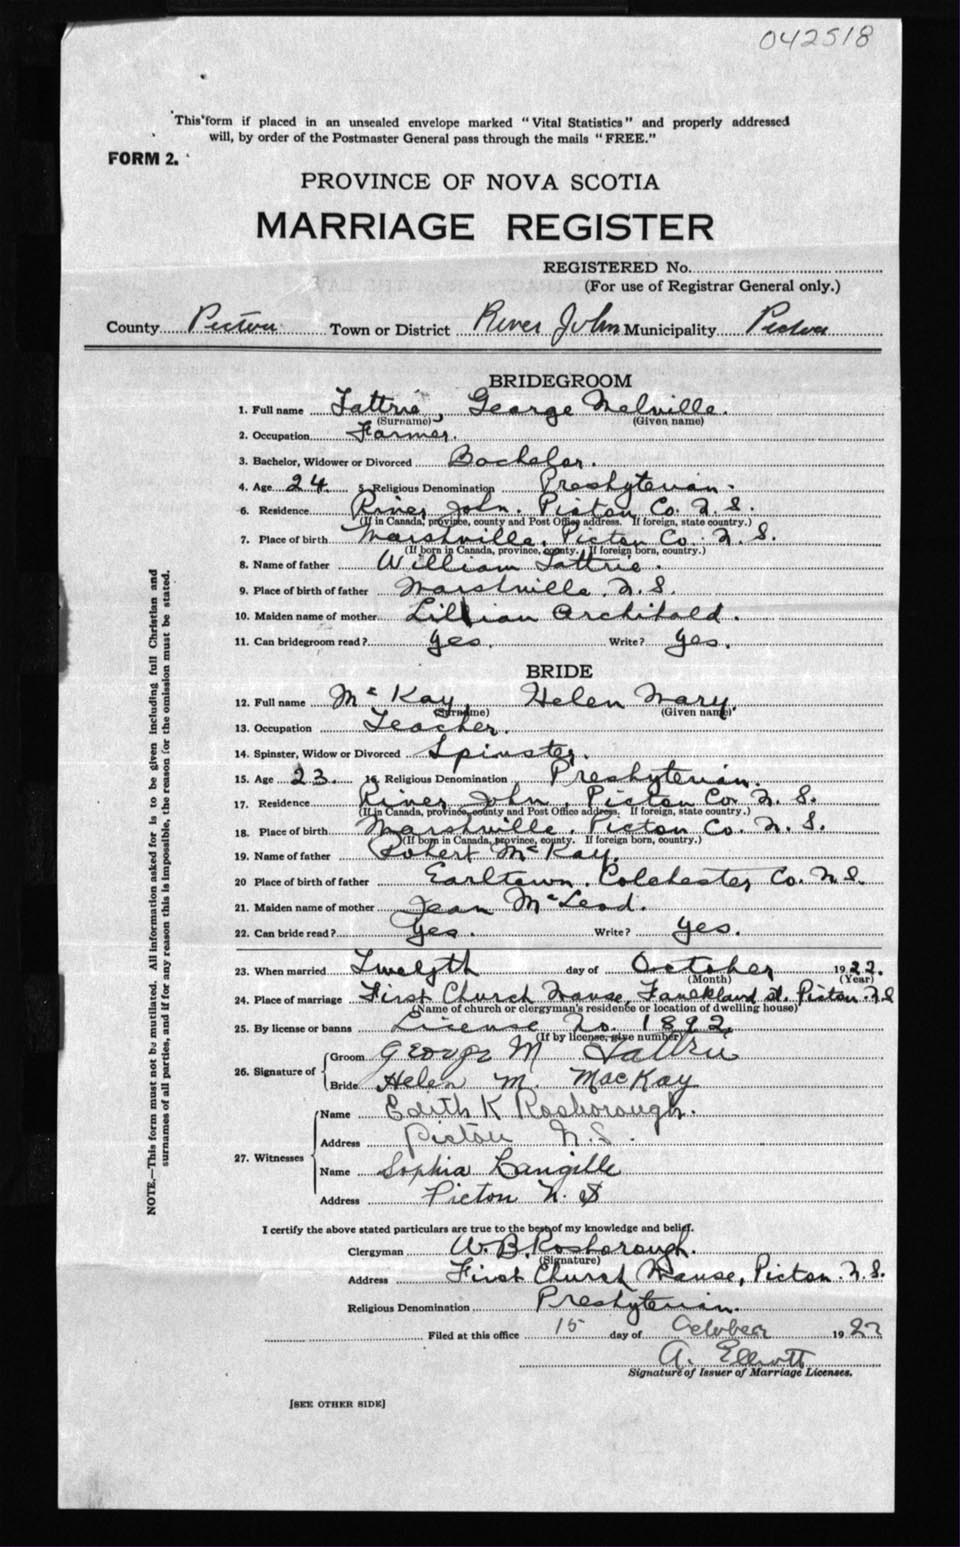 042518
This form if placed in an unsealed envelope marked "Vital Statistics" and properly addressed
will, by order of the Postmaster General pass through the mails "FREE."
FORM 2.
PROVINCE OF NOVA SCOTIA
MARRIAGE REGISTER
REGISTERED No.
(For use of Registrar General only.)
County Pictou Town or District River John Municipality Pictou
BRIDEGROOM
1. Full name Tattrie, George Melville.
(Surname) (Given name)
2. Occupation Farmer.
3. Bachelor, Widower or Divorced Bachelor.
4. Age 24. 5. Religious Denomination Presbyterian.
6. Residence River John. Pictou Co. N. S.
(If in Canada, province, county and Post Office address. If foreign, state country.)
7. Place of birth Marshville, Pictou Co. N. S.
(If born in Canada, province, county. If foreign born, country.)
8. Name of father William Tattrie.
9. Place of birth of father Marshville. N. S.
10. Maiden name of mother Lillian Archibald.
11. Can bridegroom read? Yes. Write? Yes.
BRIDE
12. Full name McKay, Helen Mary.
(Surname) (Given name)
13. Occupation Teacher.
14. Spinster, Widow or Divorced Spinster.
15. Age 23. 16. Religious Denomination Presbyterian.
17. Residence River John, Pictou Co. N. S.
(If in Canada, province, county and Post Office address. If foreign, state country.)
18. Place of birth Marshville. Pictou Co. N. S.
(If born in Canada, province, county. If foreign born, country.)
19. Name of father Robert McKay.
20 Place of birth of father Earltown. Colchester Co. N.S.
21. Maiden name of mother Jean McLeod.
22. Can bride read? Yes. Write? Yes.
23. When married Twelfth day of October 1922.
(Month) (Year)
24. Place of marriage First Church Manse, Faulkland St. Pictou. N.S
(Name of church or clergyman's residence or location of dwelling house)
25. By license or banns License No. 1892.
(If by license, give number)
26. Signature of Groom George M Tattrie
Bride Helen M. MacKay
27. Witnesses Name Edith K Rosborough.
Address Pictou N.S.
Name Sophia Langille
Address Pictou N. S
I certify the above stated particulars are true to the best of my knowledge and belief.
Clergyman W. B. Rosborough.
(Signature)
Address First Church Manse, Pictou. N. S.
Religious Denomination Presbyterian.
Filed at this office 15 day of October 1922
A. Elliott
Signature of Issuer of Marriage Licenses.
[SEE OTHER SIDE]
NOTE.—This form must not be mutilated. All information asked for is to be given including full Christian and
surnames of all parties, and if for any reason this is impossible, the reason for the omission must be stated.